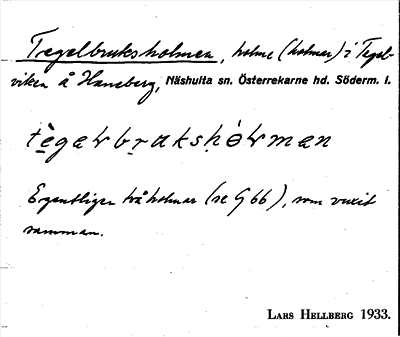 Tegelbruksholmen, holme (holmar) i Tegel-
viken å Haneberg, Näshulta sn. Österrekarne hd. Söderm. l.
tègaɫbrukshòɫmən
Egentligen två holmar (se G 66), som vuxit
samman.
LARS HELLBERG 1933.